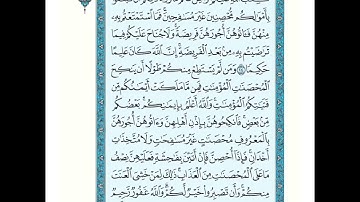 بِأَمْوَٰلِكُم مُّحْصِنِينَ غَيْرَ مُسَٰفِحِينَ ۚ فَمَا ٱسْتَمْتَعْتُم بِهِۦ
مِنْهُنَّ فَـَٔاتُوهُنَّ أُجُورَهُنَّ فَرِيضَةً ۚ وَلَا جُنَاحَ عَلَيْكُمْ فِيمَا
تَرَٰضَيْتُم بِهِۦ مِنۢ بَعْدِ ٱلْفَرِيضَةِ ۚ إِنَّ ٱللَّهَ كَانَ عَلِيمًا
حَكِيمًا ۝ وَمَن لَّمْ يَسْتَطِعْ مِنكُمْ طَوْلًا أَن يَنكِحَ
ٱلْمُحْصَنَٰتِ ٱلْمُؤْمِنَٰتِ فَمِن مَّا مَلَكَتْ أَيْمَٰنُكُم مِّن
فَتَيَٰتِكُمُ ٱلْمُؤْمِنَٰتِ ۚ وَٱللَّهُ أَعْلَمُ بِإِيمَٰنِكُم ۚ بَعْضُكُم
مِّنۢ بَعْضٍ ۚ فَٱنكِحُوهُنَّ بِإِذْنِ أَهْلِهِنَّ وَءَاتُوهُنَّ أُجُورَهُنَّ
بِٱلْمَعْرُوفِ مُحْصَنَٰتٍ غَيْرَ مُسَٰفِحَٰتٍ وَلَا مُتَّخِذَٰتِ
أَخْدَانٍ ۚ فَإِذَآ أُحْصِنَّ فَإِنْ أَتَيْنَ بِفَٰحِشَةٍ فَعَلَيْهِنَّ نِصْفُ
مَا عَلَى ٱلْمُحْصَنَٰتِ مِنَ ٱلْعَذَابِ ۚ ذَٰلِكَ لِمَنْ خَشِىَ ٱلْعَنَتَ
مِنكُمْ ۚ وَأَن تَصْبِرُوا۟ خَيْرٌ لَّكُمْ ۗ وَٱللَّهُ غَفُورٌ رَّحِيمٌ